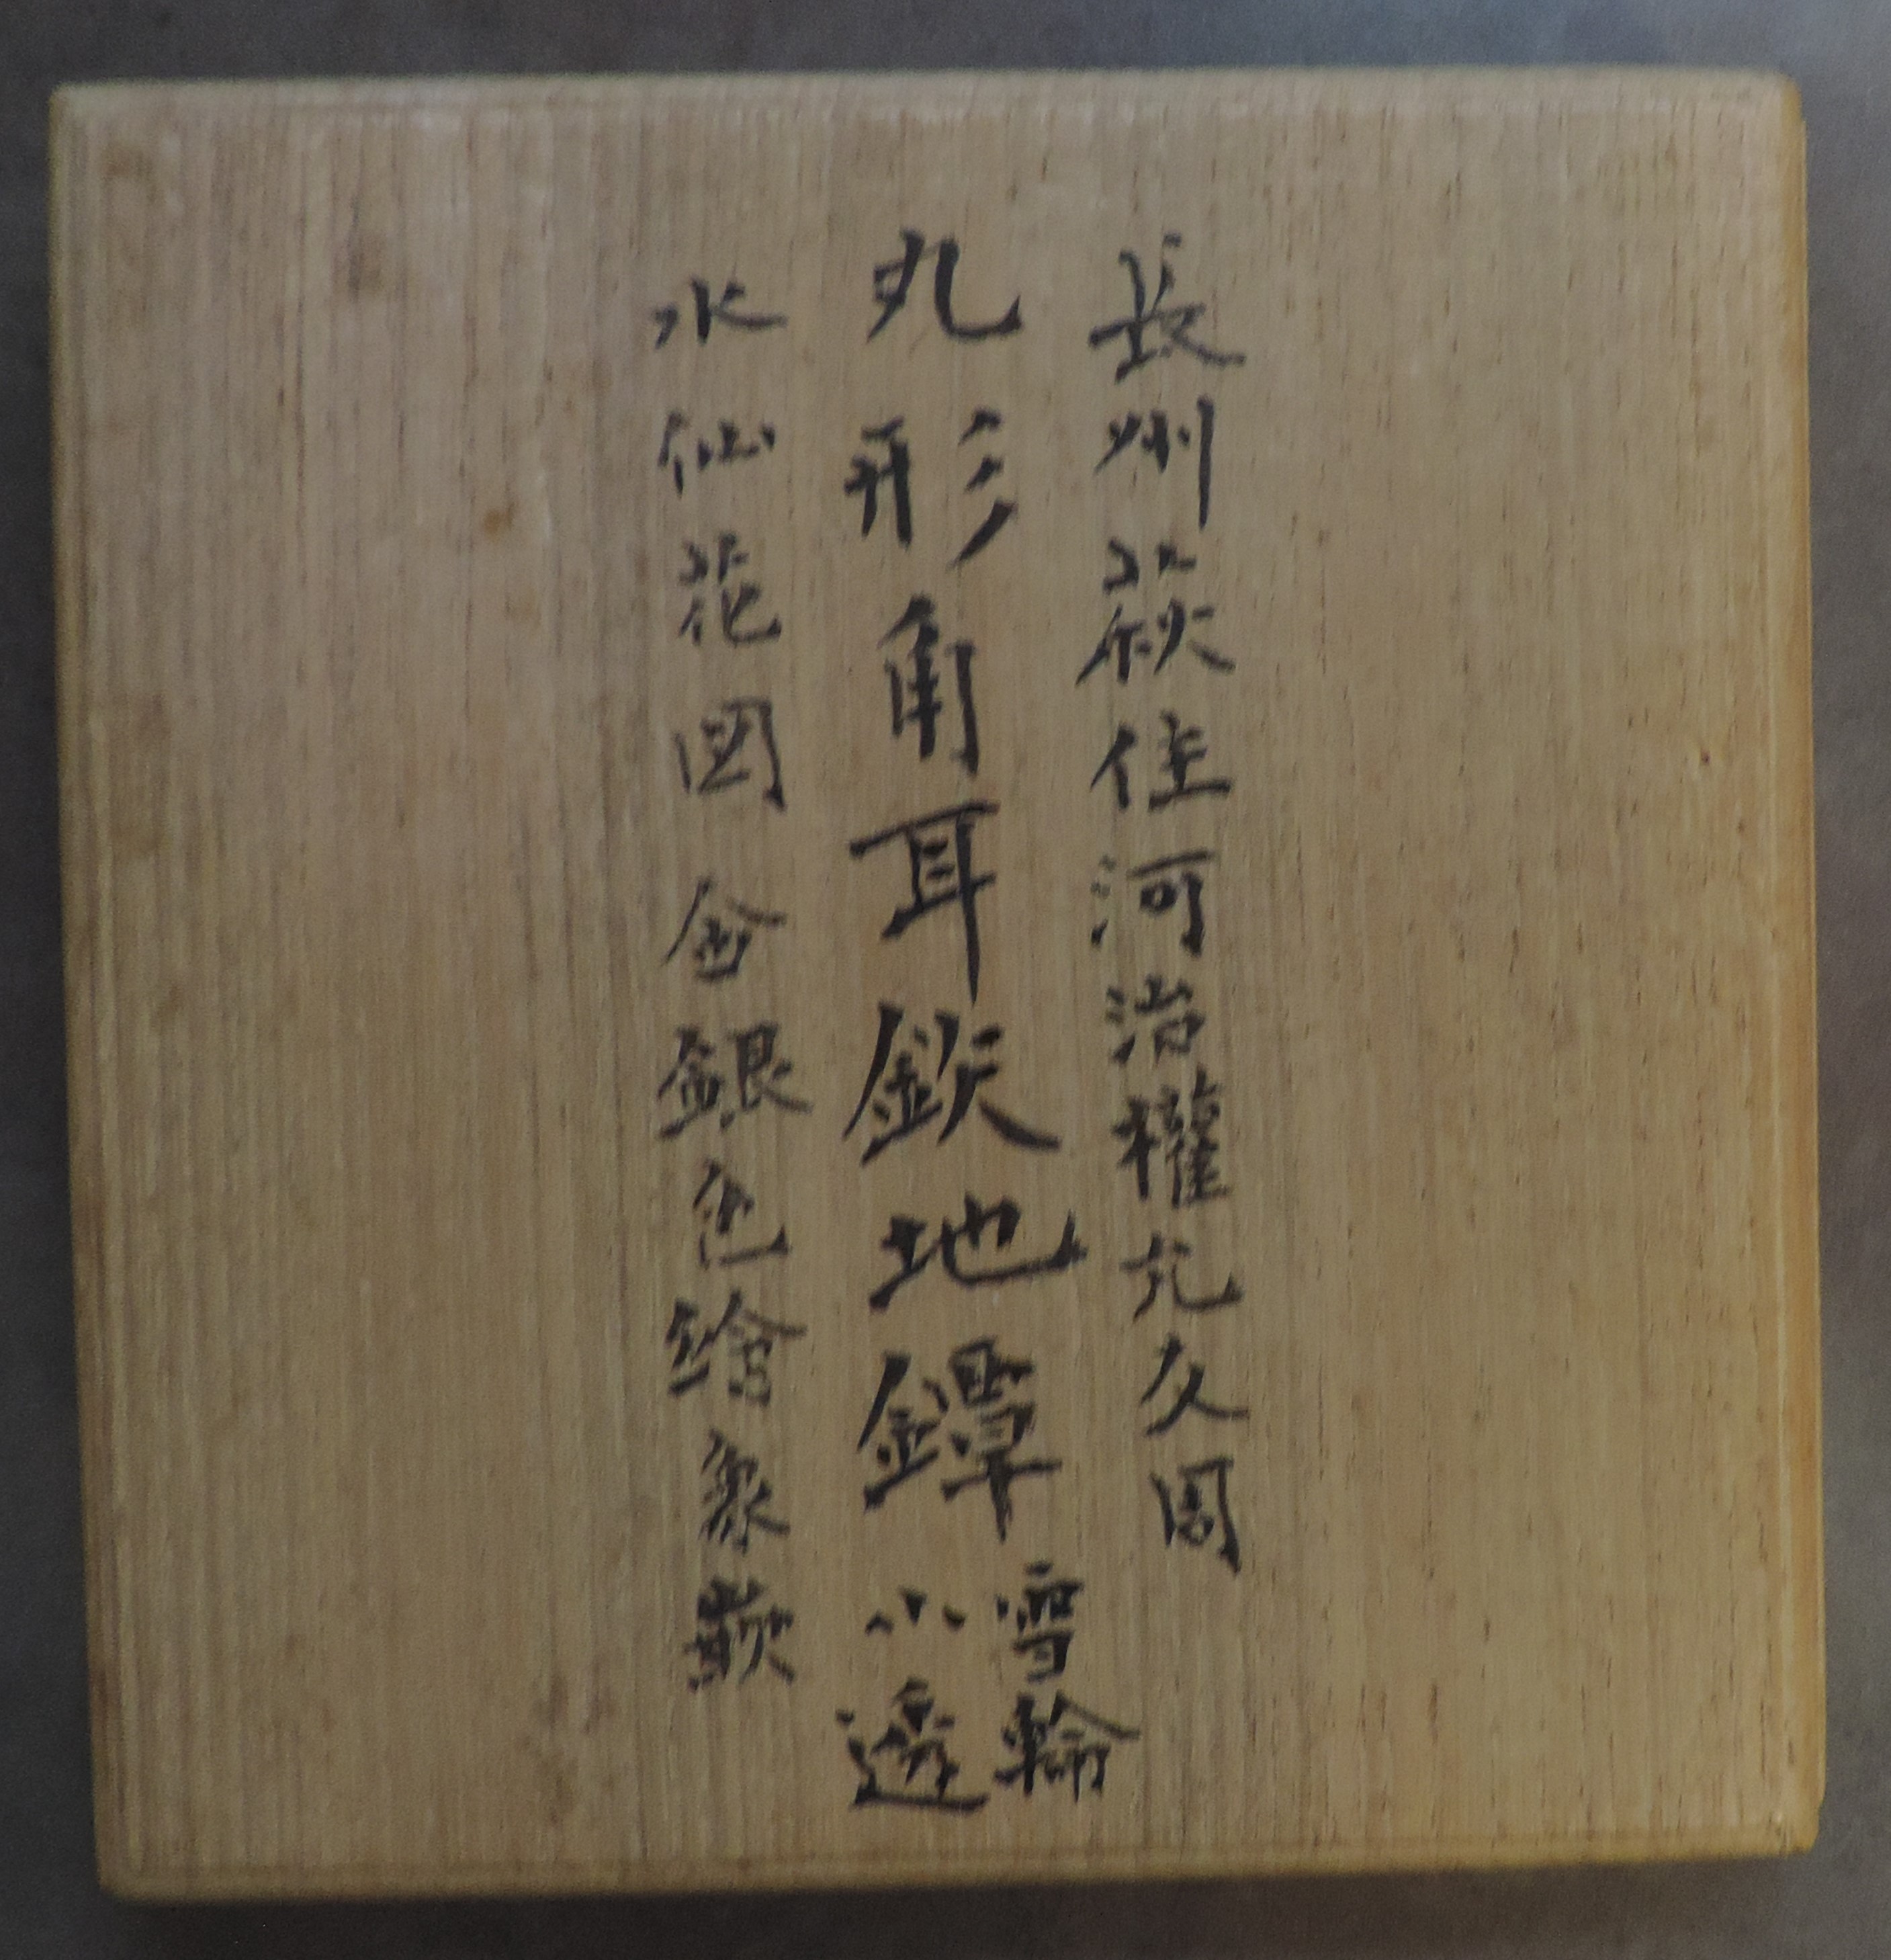 長州萩住河治權允友周
丸形角耳鉄地鐔
雪輪
小透
水仙花図金銀色繪象嵌